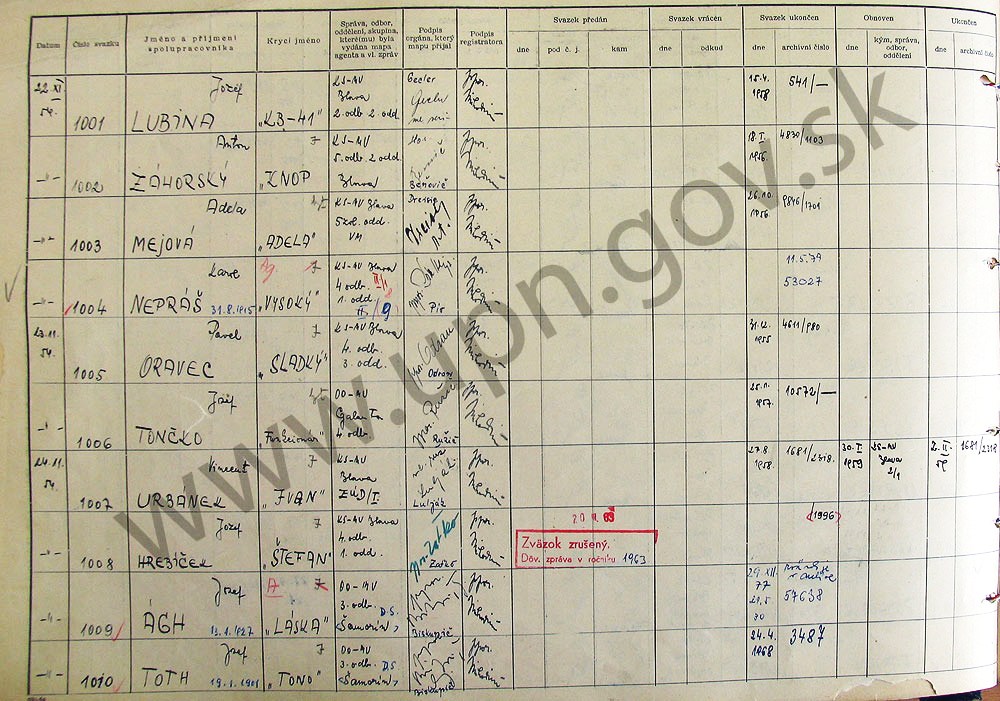 Datum
Číslo svazku
Jméno a příjmení
spolupracovníka
Krycí jméno
Správa, odbor,
oddělení, skupina,
které(mu) byla
vydána mapa
agenta a vl. zpráv
Podpis
orgána, který
mapu přijal
Podpis
registratora
Svazek předán
dne
pod č. j.
kam
Svazek vrácen
dne
odkud
Svazek ukončen
dne
archivní číslo
Obnoven
dne
kým, správa,
odbor,
oddělení
Ukončen
dne
archivní číslo
22 XI
54.
1001
Jozef
LUBINA
„KB-41"
KS-MV
Blava
2. odb 2. odd.
Gecler
15.4.
1958
541/—
1002
Anton
ZÁHORSKÝ
„KNOP
KS-MV
5. odb. 2 odd.
Blava
Beňovič
18.I.
1956.
4830/1103
1003
Adela
MEJOVÁ
„ADELA"
KS-MV Blava
VM
26.10.
1956
9846/1701
1004
Karel
NEPRÁŠ 31.8.1915
Ag.
„VYSOKÝ"
KS-MV Blava
4 odb. II/1
1. odd.
II/9
11.5.79
53027
23.11.
54.
1005
Pavel
ORAVEC
„SLADKÝ"
KS-MV Blava
4. odb.
3. odd.
31.12.
1955
4611/980
1006
Jozef
TONČKO
„Funkcionár"
OO-MV
Galanta
4. odb.
Ružič
25.11.
1957.
10572/—
24.11.
54.
1007
Vincent
URBANEK
„IVAN"
KS-MV
Blava
ZÚD/I
Lulják
27.8
1958.
1681/2318.
30.I
1959
KS-MV
Blava
2/1
2.II.
59
1681/2318
1008
Jozef
HREBÍČEK
„ŠTEFAN"
KS-MV Blava
4. odb.
1. odd.
Zatko
Zväzok zrušený.
Dôv. zpráva v ročníku 1963
(1996)
1009
Jozef
ÁGH
A
„LASKA"
OO-MV
3. odb. D.S.
(Šamorín)
Biskupič
29.XII.
77
57638
1010
Jozef
TOTH 19.1.1901
„TONO"
OO-MV
3. odb. DS
(Šamorín)
Biskupič
24.4.
1968
3487
www.upn.gov.sk